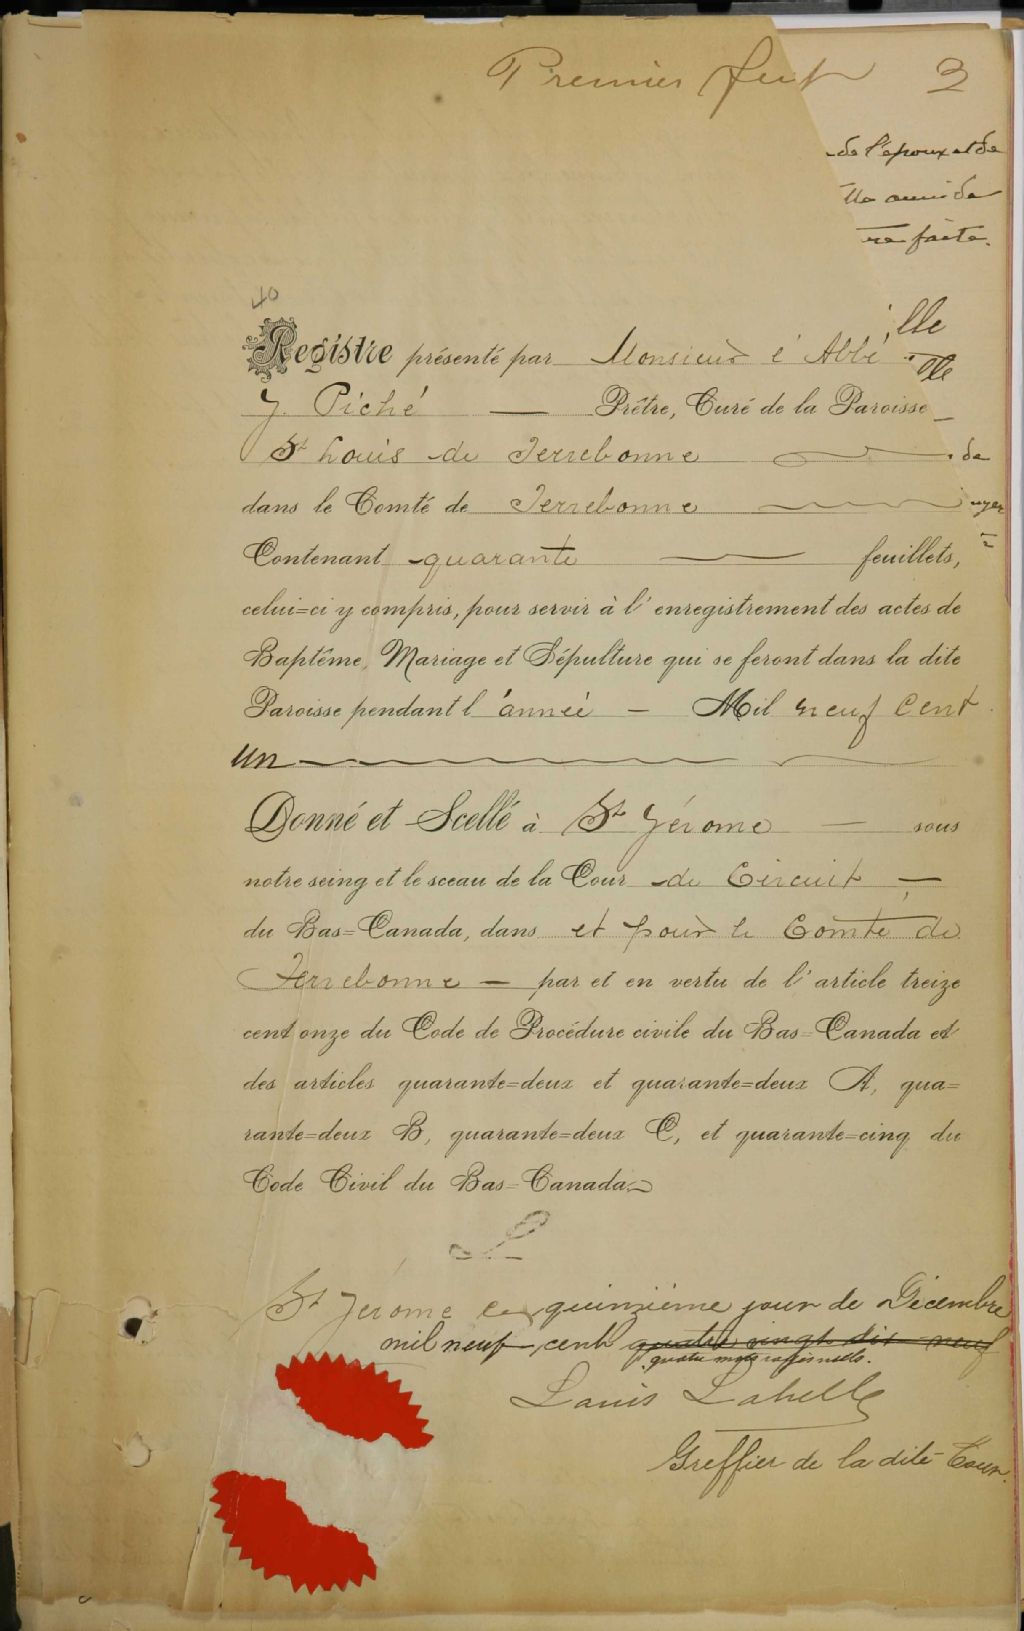 Premier feut 3
de l'époux et de
lla ami de
re faite.
40
lle
Registre présenté par Monsieur l'Abbé
lle
J. Piché — Prêtre, Curé de la Paroisse
St Louis de Terrebonne
de
dans le Comté de Terrebonne
uyer
Contenant quarante — feuillets,
celui=ci y compris, pour servir à l'enregistrement des actes de
Baptême, Mariage et Sépulture qui se feront dans la dite
Paroisse pendant l'année — Mil neuf cent
un
Donné et Scellé à St Jérome — sous
notre seing et le sceau de la Cour de Circuit —
du Bas=Canada, dans et pour le Comté de
Terrebonne — par et en vertu de l'article treize
cent onze du Code de Procédure civile du Bas=Canada et
des articles quarante=deux et quarante=deux A, qua=
rante=deux B, quarante=deux C, et quarante=cinq du
Code Civil du Bas=Canada
St Jérome ce quinzième jour de Décembre
mil neuf cent quatre vingt dix neuf
quatre mots rayés nuls.
Louis Labelle
Greffier de la dite Cour.